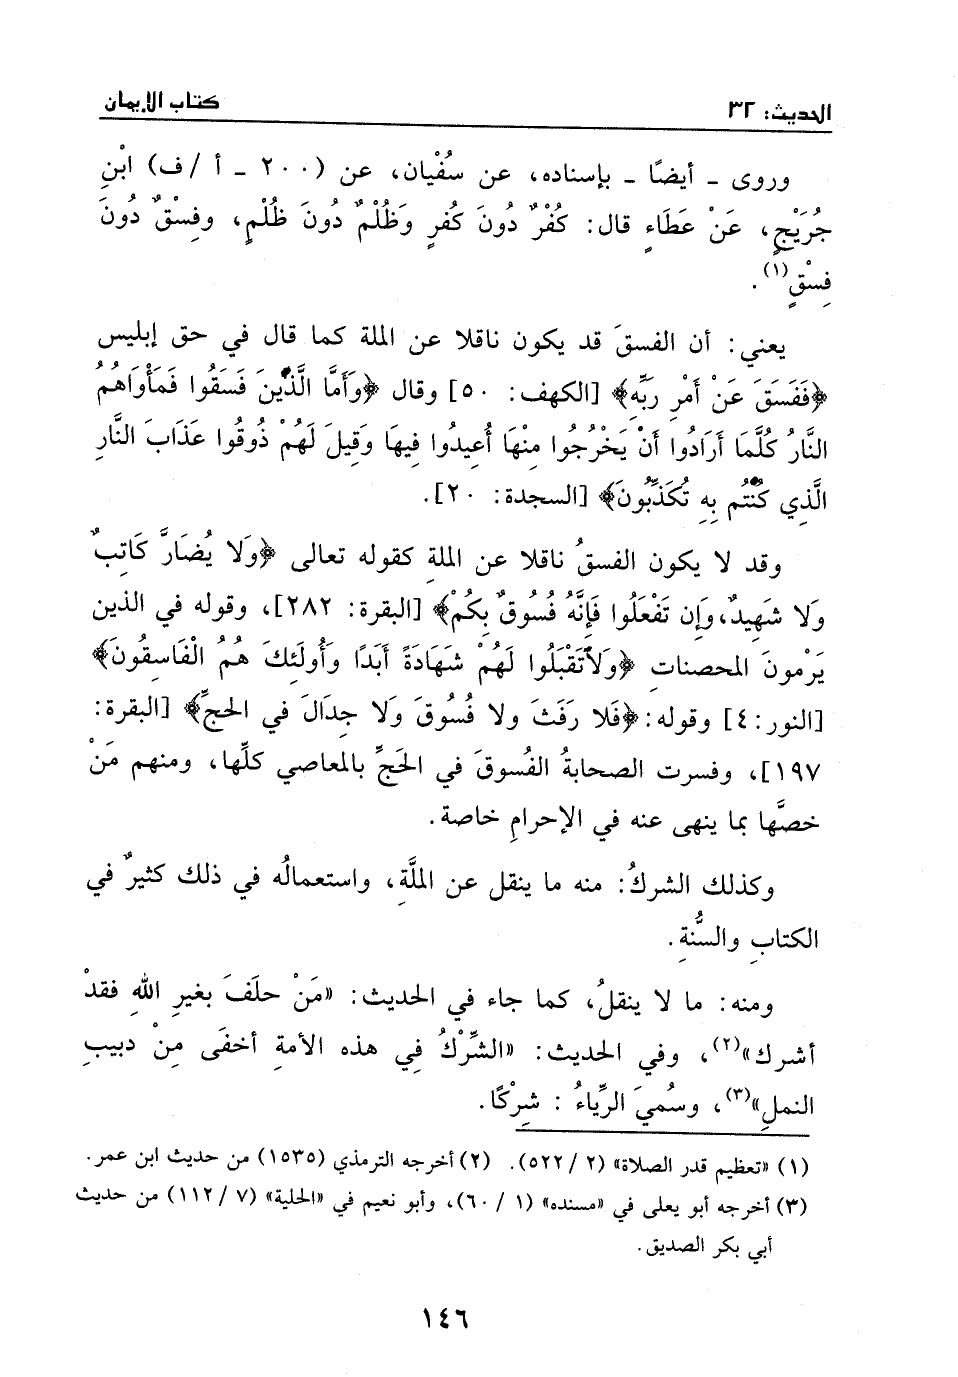 الحديث: ٣٢ كتاب الإيمان
وروى - أيضًا - بإسناده، عن سُفْيان، عن (٢٠٠ - أ / ف) ابْنِ
جُرَيْجٍ، عَنْ عَطَاءٍ قال: كُفْرٌ دُونَ كُفرٍ وَظُلْمٌ دُونَ ظُلْمٍ، وفِسْقٌ دُونَ
فِسْقٍ(١).
يعني: أن الفسقَ قد يكون ناقلا عن الملة كما قال في حق إبليس
﴿فَفَسَقَ عَنْ أَمْرِ رَبِّهِ﴾ [الكهف: ٥٠] وقال ﴿وَأَمَّا الَّذِينَ فَسَقُوا فَمَأْوَاهُمُ
النَّارُ كُلَّمَا أَرَادُوا أَنْ يَخْرُجُوا مِنْهَا أُعِيدُوا فِيهَا وَقِيلَ لَهُمْ ذُوقُوا عَذَابَ النَّارِ
الَّذِي كُنْتُم بِهِ تُكَذِّبُونَ﴾ [السجدة: ٢٠].
وقد لا يكون الفسقُ ناقلا عن الملةِ كقوله تعالى ﴿وَلَا يُضَارَّ كَاتِبٌ
وَلا شَهِيدٌ، وَإِن تَفْعَلُوا فَإِنَّهُ فُسُوقٌ بِكُمْ﴾ [البقرة: ٢٨٢]، وقوله في الذين
يَرْمونَ المحصناتِ ﴿وَلَا تَقْبَلُوا لَهُمْ شَهَادَةً أَبَدًا وَأُولَئِكَ هُمُ الْفَاسِقُونَ﴾
[النور: ٤] وقوله: ﴿فَلا رَفَثَ ولا فُسُوقَ وَلا جِدَالَ في الحَجِّ﴾ [البقرة:
١٩٧]، وفسرت الصحابةُ الفُسوقَ في الحَجِّ بالمعاصي كلِّها، ومنهم مَنْ
خصَّها بما ينهى عنه في الإحرامِ خاصة.
وكذلك الشركُ: منه ما ينقل عن الملَّةِ، واستعمالُه في ذلك كثيرٌ في
الكتابِ والسُّنَّةِ.
ومنه: ما لا ينقلُ، كما جاء في الحديث: «مَنْ حلَفَ بغيرِ اللهِ فقدْ
أشرك»(٢)، وفي الحديث: «الشِّرْكُ فِي هذه الأمةِ أخفَى مِنْ دبيبِ
النملِ»(٣)، وسُميَ الرِّياءُ : شِرْكًا.
(١) «تعظيم قدر الصلاة» (٢ / ٥٢٢). (٢) أخرجه الترمذي (١٥٣٥) من حديث ابن عمر.
(٣) أخرجه أبو يعلى في «مسنده» (١ / ٦٠)، وأبو نعيم في «الحلية» (٧ / ١١٢) من حديث
أبي بكر الصديق.
١٤٦